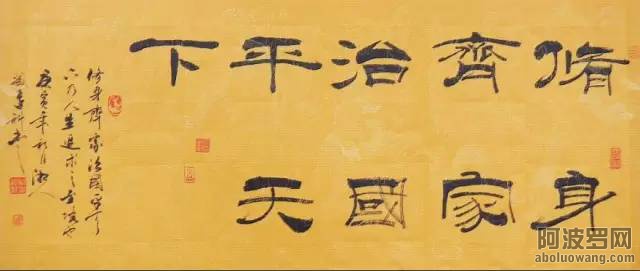 脩身
齊家
治國
平天
下
脩身齊家治國平天
下乃人生追求之至境也
庚寅年初月湘人
阿波罗网
aboluowang.com